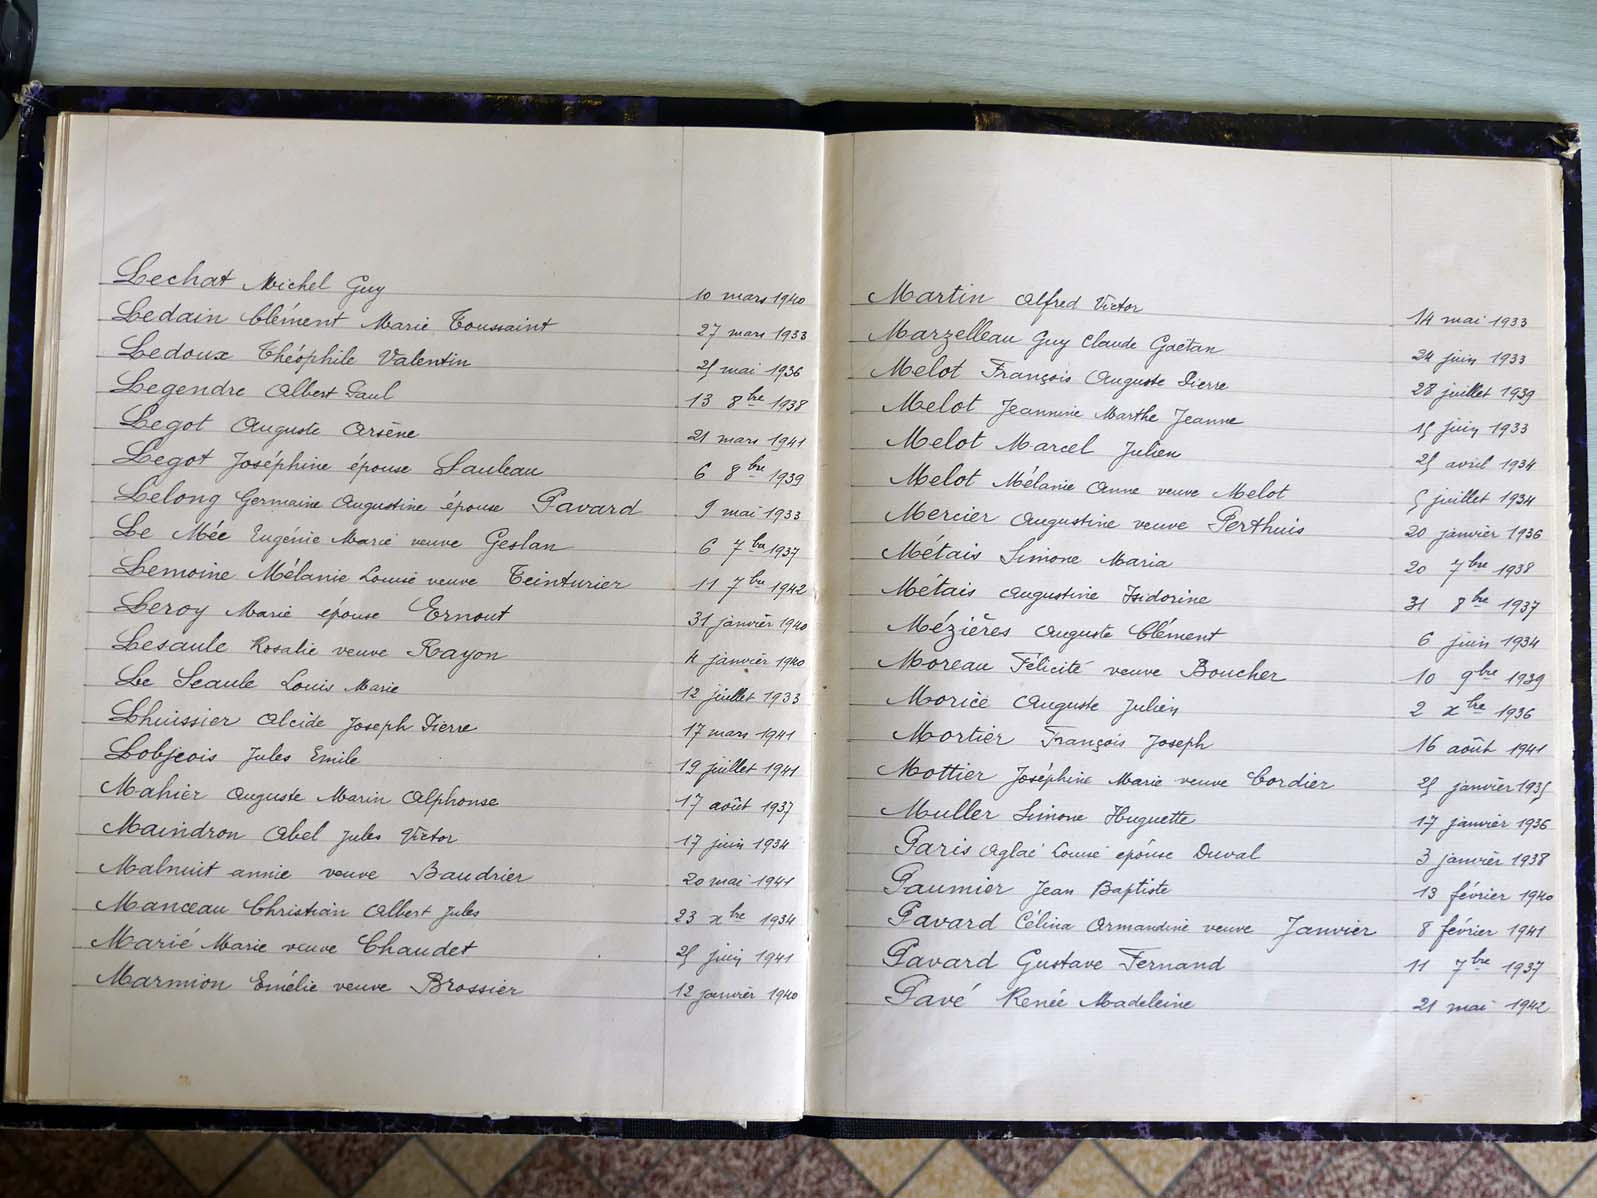 Lechat Michel Guy 10 mars 1940
Ledain Clément Marie Toussaint 27 mars 1933
Ledoux Théophile Valentin 25 mai 1936
Legendre Albert Paul 13 8bre 1938
Legot Auguste Arsène 21 mars 1941
Legot Joséphine épouse Sauleau 6 8bre 1939
Lelong Germaine Augustine épouse Pavard 9 mai 1933
Le Mée Eugénie Marie veuve Geslan 6 7bre 1937
Lemoine Mélanie Louise veuve Teinturier 11 7bre 1942
Leroy Marie épouse Ernout 31 janvier 1940
Lesaule Rosalie veuve Rayon 4 janvier 1940
Le Seaule Louis Marie 12 juillet 1933
Lhuissier Alcide Joseph Pierre 17 mars 1941
Lobjeois Jules Emile 19 juillet 1941
Mahier Auguste Marin Alphonse 17 août 1937
Maindron Abel Jules Victor 17 juin 1934
Malnuit Annie veuve Baudrier 20 mai 1941
Manceau Christian Albert Jules 23 xbre 1934
Marié Marie veuve Chaudet 25 juin 1941
Marmion Emélie veuve Brossier 12 janvier 1940
Martin Alfred Victor 14 mai 1933
Marzelleau Guy Claude Gaëtan 24 juin 1933
Melot François Auguste Pierre 28 juillet 1939
Melot Jeannine Marthe Jeanne 15 juin 1933
Melot Marcel Julien 25 avril 1934
Melot Mélanie Anne veuve Melot 5 juillet 1934
Mercier Augustine veuve Perthuis 20 janvier 1936
Métais Simone Maria 20 7bre 1938
Métais Augustine Isidorine 31 8bre 1937
Mézières Auguste Clément 6 juin 1934
Moreau Félicité veuve Boucher 10 9bre 1939
Morice Auguste Julien 2 xbre 1936
Mortier François Joseph 16 août 1941
Mottier Joséphine Marie veuve Cordier 25 janvier 1935
Muller Simone Huguette 17 janvier 1936
Paris Aglaé Louise épouse Duval 3 janvier 1938
Paumier Jean Baptiste 13 février 1940
Pavard Célina Armandine veuve Janvier 8 février 1941
Pavard Gustave Fernand 11 7bre 1937
Pavé Renée Madeleine 21 mai 1942